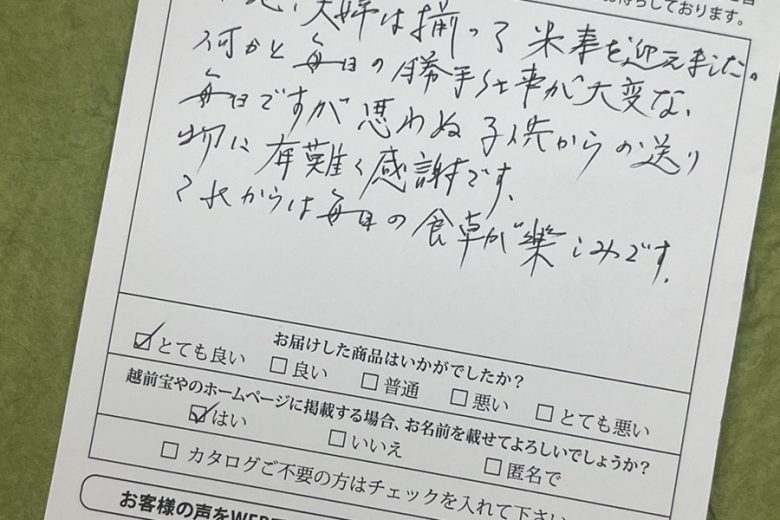 待ちしております。
夫婦は揃って米寿を迎えました。
何かと毎日の勝手仕事が大変な
毎日ですが思わぬ子供からの送り
物に有難く感謝です。
これからは毎日の食卓が楽しみです。
お届けした商品はいかがでしたか?
☑とても良い □良い □普通 □悪い □とても悪い
越前宝やのホームページに掲載する場合、お名前を載せてよろしいでしょうか?
☑はい □いいえ □匿名で
□ カタログご不要の方はチェックを入れて下さい
お客様の声をWEB